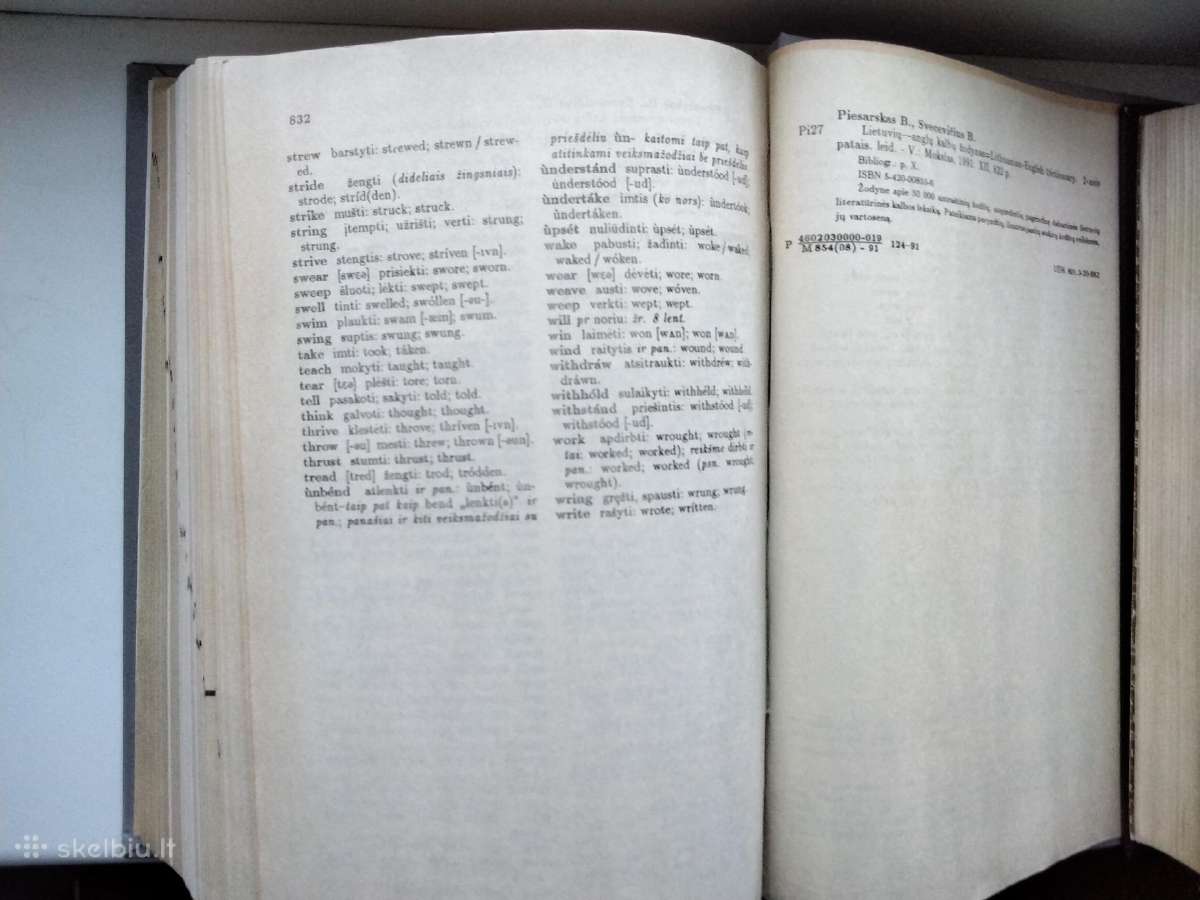 832
strew barstyti: strewed; strewn / strew-
ed.
stride žengti (dideliais žingsniais):
strode; stríd(den).
strike mušti: struck; struck.
string įtempti; užrišti; verti: strung;
strung.
strive stengtis: strove; stríven [-ɪvn].
swear [swɛə] prisiekti: swore; sworn.
sweep šluoti; lėkti: swept; swept.
swell tinti: swelled; swóllen [-əu-].
swim plaukti: swam [-æm]; swum.
swing suptis: swung; swung.
take imti: took; táken.
teach mokyti: taught; taught.
tear [tɛə] plėšti: tore; torn.
tell pasakoti; sakyti: told; told.
think galvoti: thought; thought.
thrive klestėti: throve; thríven [-ɪvn].
throw [-əu] mesti: threw; thrown [-əun].
thrust stumti: thrust; thrust.
tread [tred] žengti: trod; tródden.
ùnbénd atlenkti ir pan.: ùnbént; ùn-
bént–taip pat kaip bend „lenkti(s)" ir
pan.; panašiai ir kiti veiksmažodžiai su
priešdėliu ùn- kaitomi taip pat, kaip
atitinkami veiksmažodžiai be priešdėlio
ùnderstánd suprasti: ùnderstóod [-ud];
ùnderstóod [-ud].
ùndertáke imtis (ko nors): ùndertóok;
ùndertáken.
ùpsét nuliūdinti: ùpsét; ùpsét.
wake pabusti; žadinti: woke / waked;
waked / wóken.
wear [wɛə] dėvėti; wore; worn.
weave austi: wove; wóven.
weep verkti; wept; wept.
will pr noriu: žr. 8 lent.
win laimėti: won [wʌn]; won [wʌn].
wind raitytis ir pan.: wound; wound
withdráw atsitraukti: withdréw; with-
dráwn.
withhóld sulaikyti: withhéld; withhéld.
withstánd priešintis: withstóod [-ud];
withstóod [-ud].
work apdirbti: wrought; wrought
worked; worked); reikšme dirbti ir
pan.: worked; worked (psn. wrought;
wrought).
wring gręžti, spausti: wrung; wrung.
write rašyti: wrote; wrítten.
Piesarskas B., Svecevičius B.
Pi27 Lietuvių—anglų kalbų žodynas=Lithuanian-English dictionary. 2-asis
patais. leid. - V.: Mokslas, 1991. XII, 822 p.
Bibliogr.: p. X.
ISBN 5-420-00855-6
Žodyne apie 50 000
literatūrinės kalbos leksiką. Pateikiama
jų vartoseną.
P 4602030000-019
M 854(08) - 91 124-91